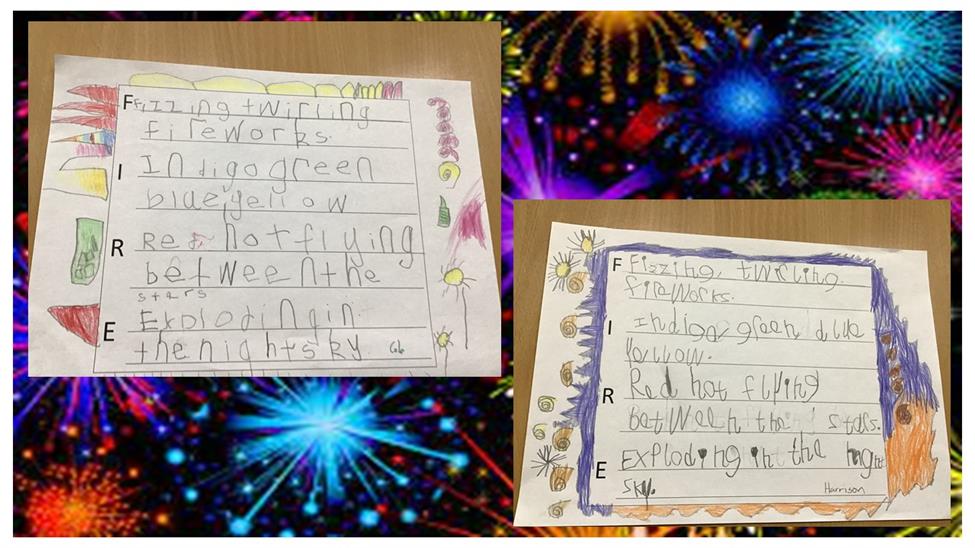 F Fizzing twirling
fireworks.
I Indigo green
blue yellow
R Red hot flying
between the
stars
E Exploding in
the night sky
F Fizzing, twirling
fireworks.
I Indigo green dlue
Yellow.
R Red hot flying
Between the stars.
E Exploding in the night
sky.
Harrison